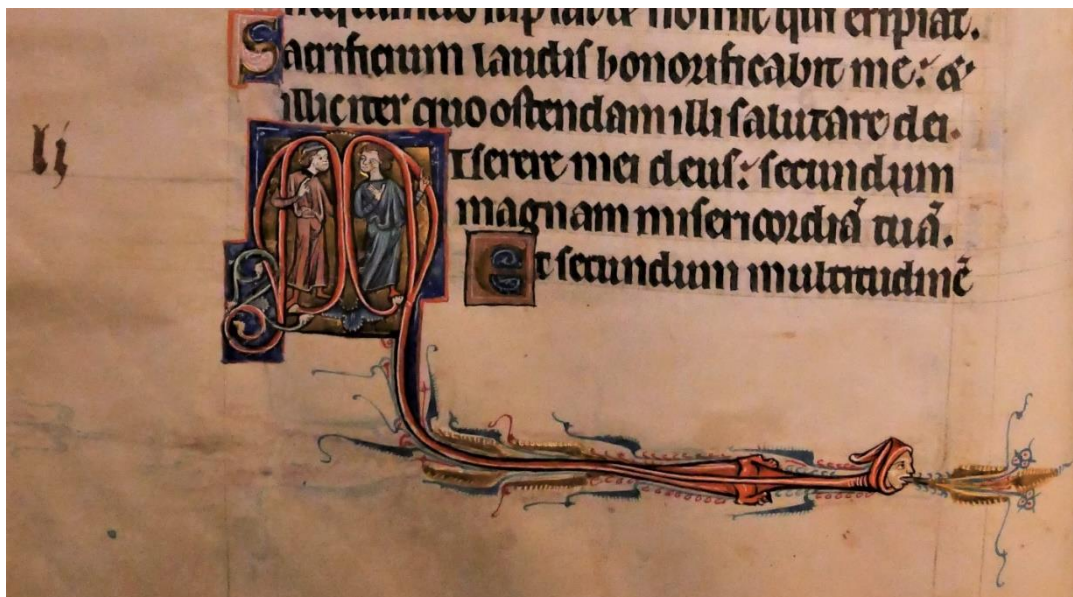 nequando rapiat & non sit qui eripiat.
Sacrificium laudis honorificabit me: &
illic iter quo ostendam illi salutare dei.
Miserere mei deus: secundum
magnam misericordiā tuā.
Et secundum multitudinē
lj